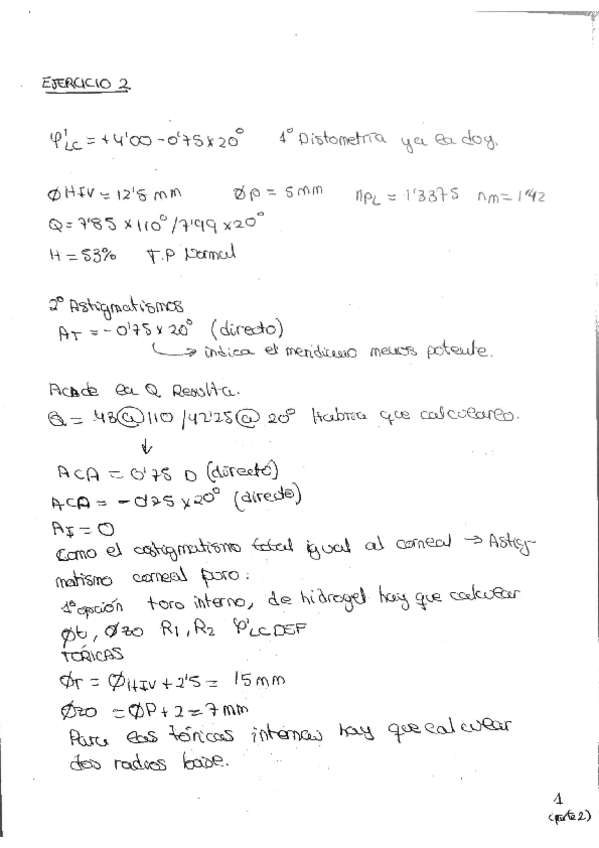 EJERCICIO 2
φ'LC = +4'00 - 0'75 x 20° 1° Distometría ya la doy.
ØHIV = 12'5 mm ØP = 5mm nPL = 1'3375 nm = 1'42
Q = 7'85 x 110° / 7'99 x 20°
H = 53% T.P Normal
2° Astigmatismos
AT = -0'75 x 20° (directo)
↳ indica el meridiano menos potente.
de la Q Resulta.
Q = 43@110 / 42'25@20° Habria que calcularlo.
↓
ACA = 0'75 D (directo)
ACA = -0'25 x 20° (directo)
AI = 0
Como el astigmatismo total igual al corneal → Astig-
matismo corneal puro:
1° opción toro interno, de hidrogel hay que calcular
Øt, Øzo R1, R2 φ'LC DEF
TÓRICAS
ØT = ØHIV + 2'5 = 15 mm
Øzo = ØP + 2 = 7 mm
Para las tóricas internas hay que calcular
dos radios base.
1
(parte 2)